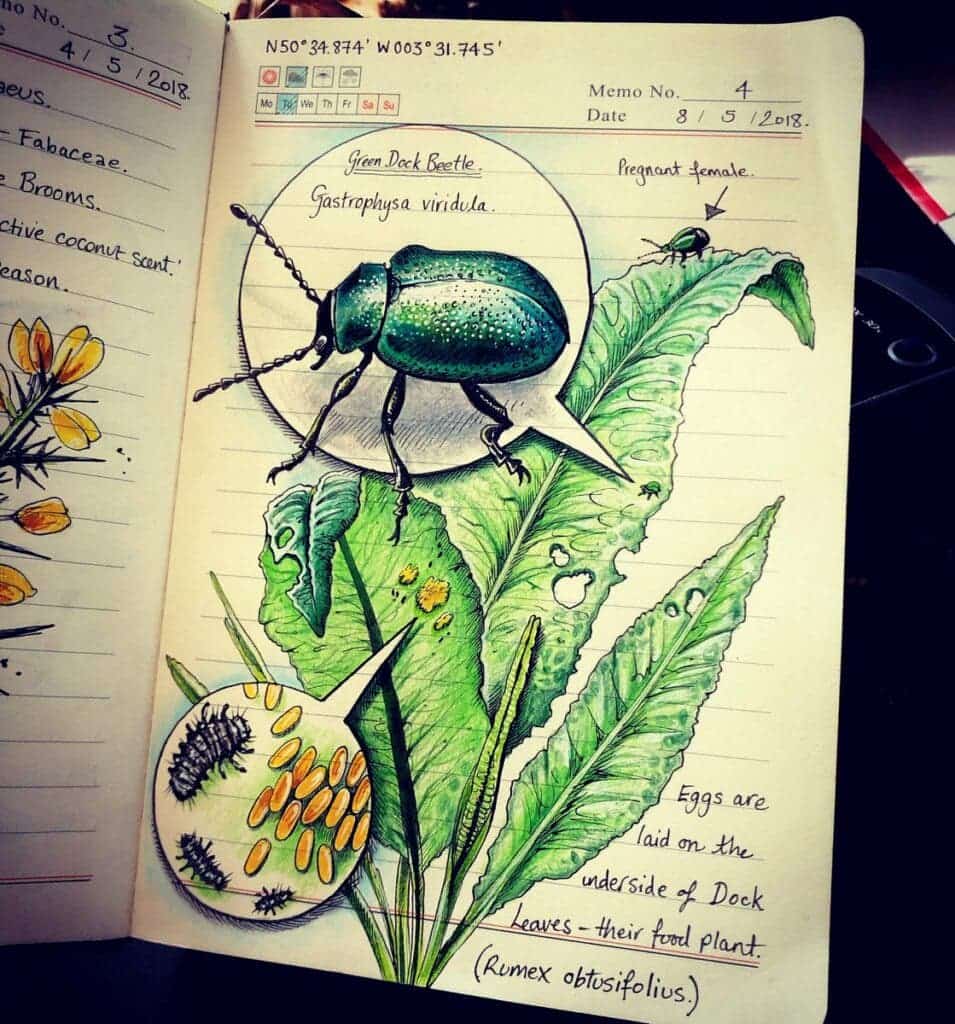 Memo No. 3.
4 / 5 / 2018.
aeus.
- Fabaceae.
e Brooms.
ctive coconut scent.'
eason.
N50°34.874' W003°31.745'
Mo Tu We Th Fr Sa Su
Memo No. 4
Date 8 / 5 / 2018.
Green Dock Beetle.
Gastrophysa viridula.
Pregnant female.
Eggs are
laid on the
underside of Dock
Leaves - their food plant.
(Rumex obtusifolius.)